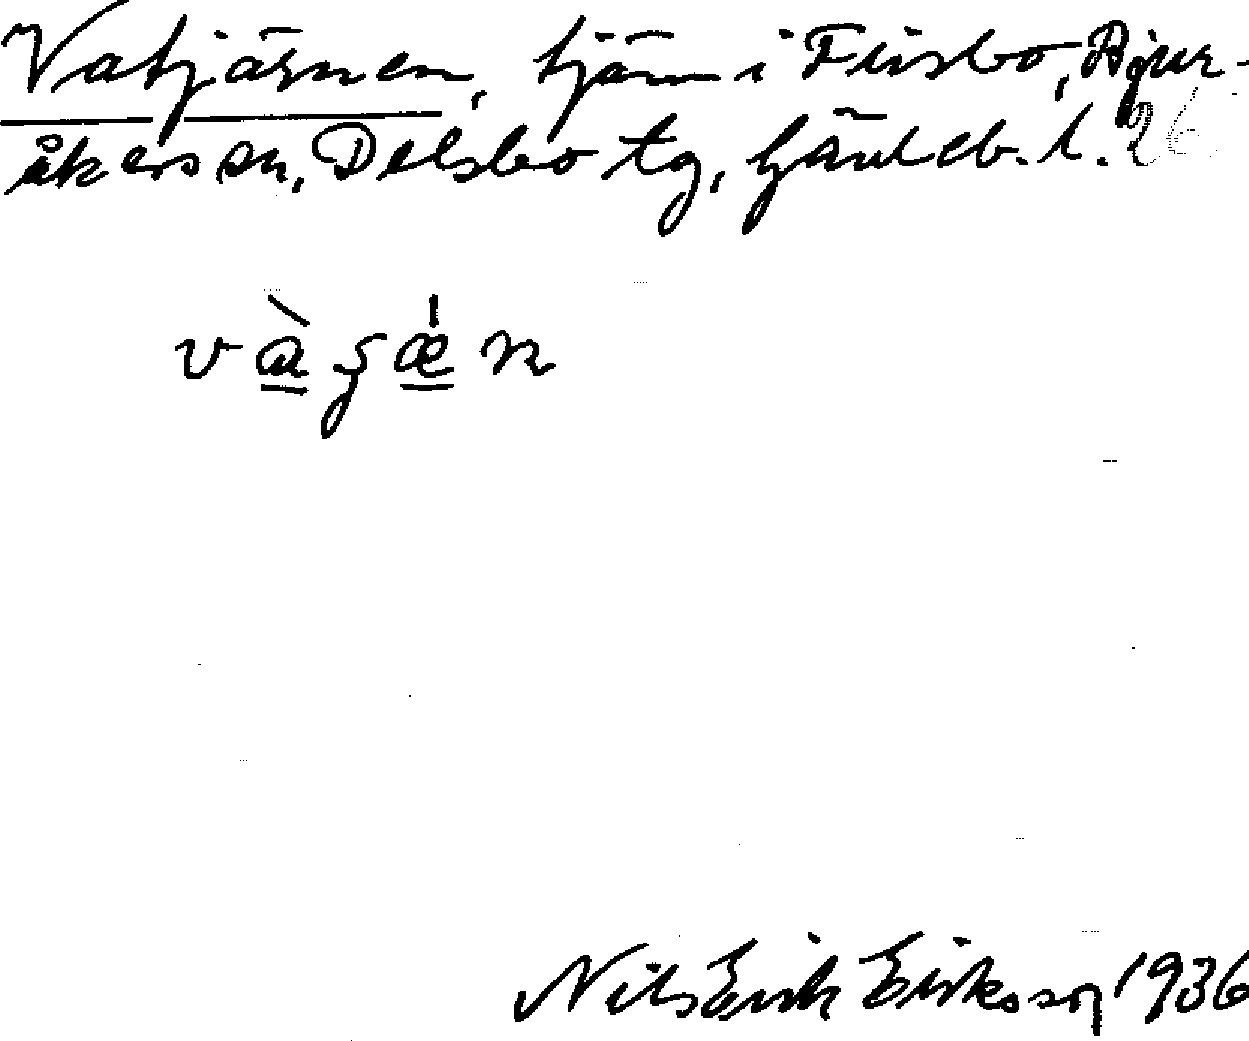 Vatjärnen, tjärn i Furbo, Bjur-
åkers sn, Delsbo tg, Gävleb. l. 26
Nils Erik Eriksson 1936